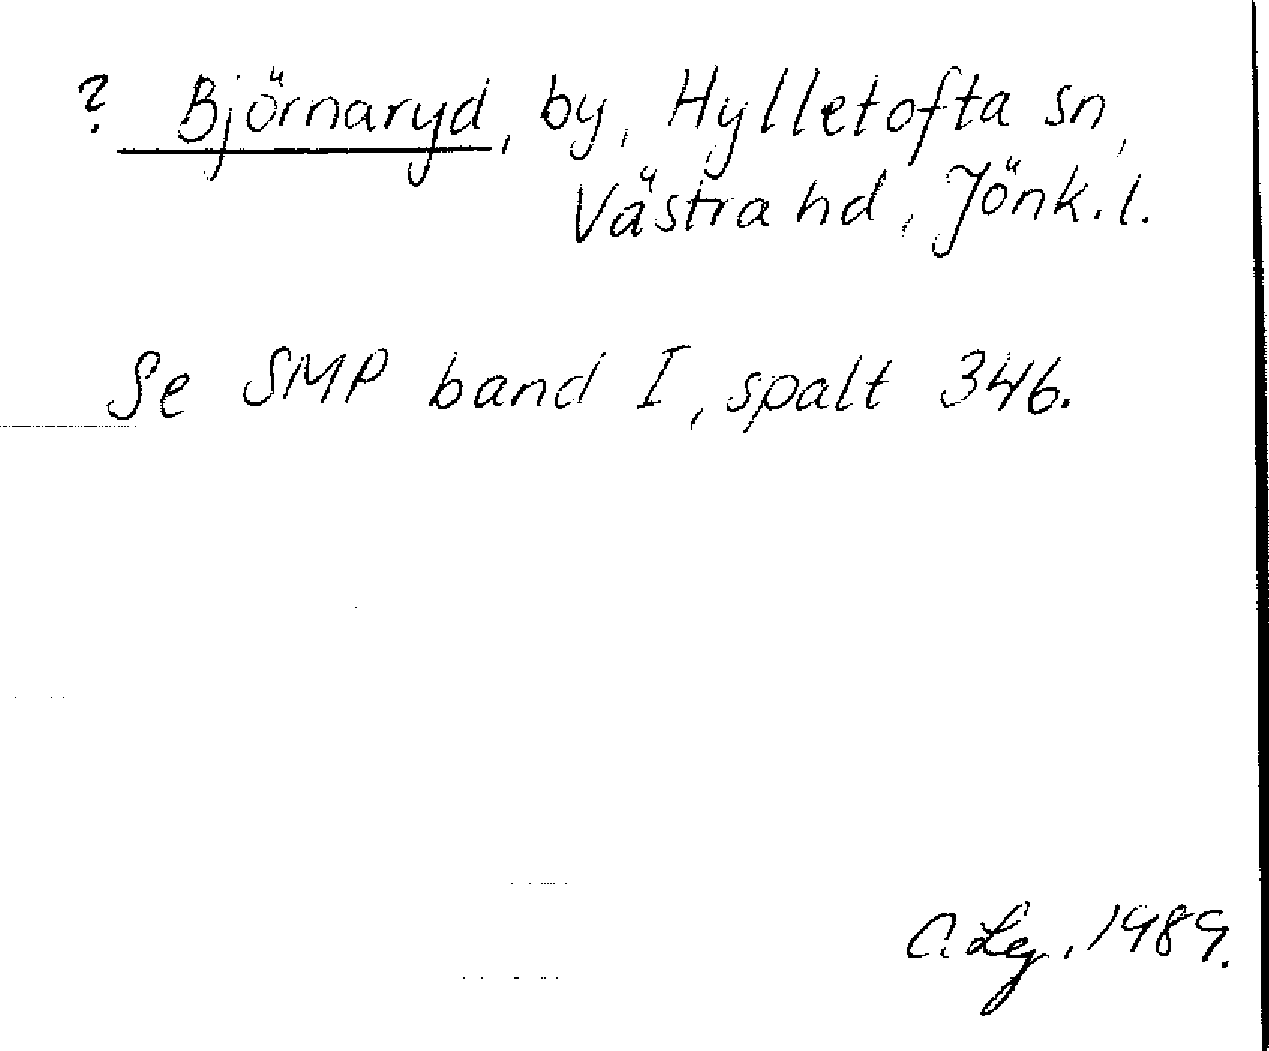 ? Björnaryd, by, Hylletofta sn,
Västra hd, Jönk. l.
Se SMP band I, spalt 346.
C. Leg. 1989.